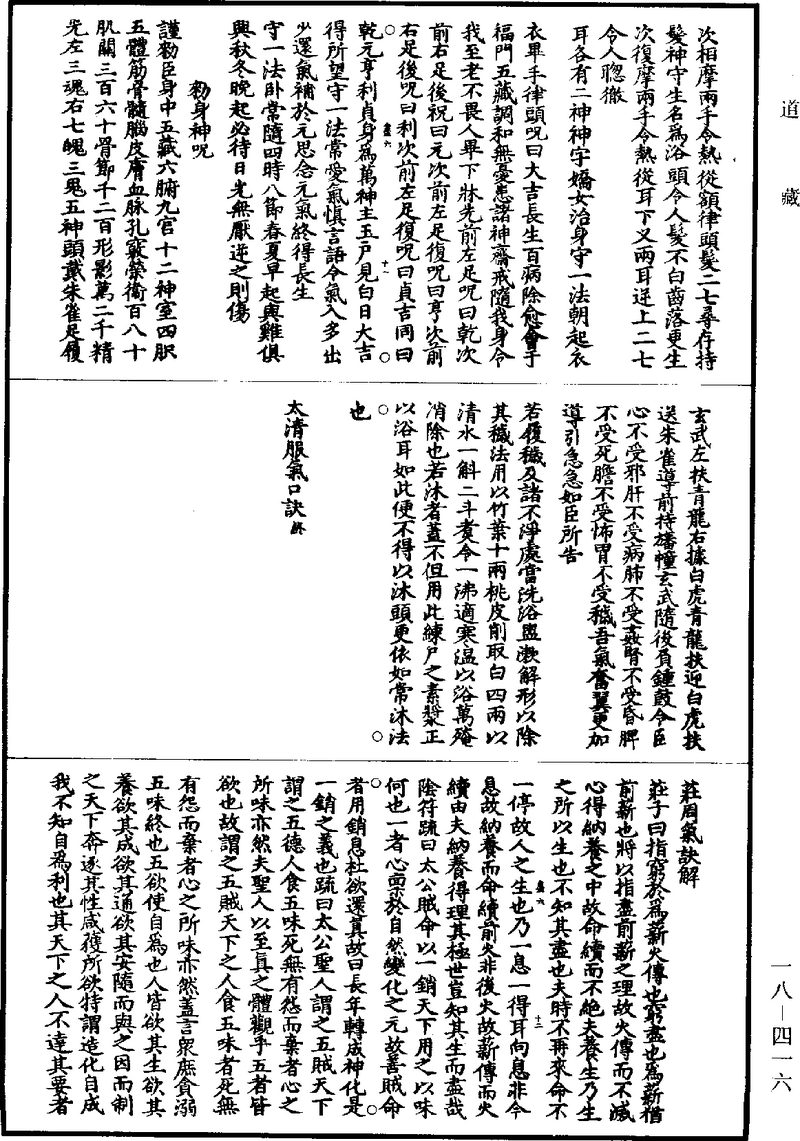 道藏
一八—四一六
次相摩兩手令熱從額律頭髮二七尋存持
髮神守生名為浴頭令人髮不白齒落更生
次復摩兩手令熱從耳下叉兩耳逆上二七
令人聰徹
耳各有二神神字嬌女治身守一法朝起衣
衣畢手律頭呪曰大吉長生百病除愈會于
福門五藏調和無憂患諸神齋戒隨我身令
我至老不畏人畢下牀先前左足呪曰乾次
前右足後祝曰元次前左足復呪曰亨次前
右足後呪曰利次前左足復呪曰貞吉同曰
乾元亨利貞身為萬神主玉戶見白日大吉
得所望守一法常愛氣慎言語令氣入多出
少還氣補於元思念元氣終得長生
守一法卧常隨四時八節春夏早起與雞俱
興秋冬晚起必待日光無厭逆之則傷
勑身神呪
謹勑臣身中五藏六腑九宮十二神室四肢
五體筋骨髓腦皮膚血脉孔竅榮衛百八十
肌關三百六十骨節千二百形影萬二千精
光左三魂右七魄三鬼五神頭戴朱雀足履
玄武左扶青龍右據白虎青龍扶迎白虎扶
送朱雀導前持旛幢玄武隨後負鍾鼓令臣
心不受邪肝不受病肺不受姦腎不受昏脾
不受死膽不受怖胃不受穢吾氣奮翼更加
導引急急如臣所告
若履穢及諸不淨處當洗浴盥漱解形以除
其穢法用以竹葉十兩桃皮削取白四兩以
清水一斛二斗煮令一沸適寒溫以浴萬殗
消除也若沐者蓋不但用此練尸之素漿正
以浴耳如此便不得以沐頭更依如常沐法
也
太清服氣口訣終
莊周氣訣解
莊子曰指窮於為薪火傳也窮盡也為薪猶
前薪也將以指盡前薪之理故火傳而不滅
心得納養之中故命續而不絕夫養生乃生
之所以生也不知其盡也夫時不再來命不
一停故人之生也乃一息一得耳向息非今
息故納養而命續前火非後火故薪傳而火
續由夫納養得理其極世豈知其生而盡哉
陰符疏曰太公賊命以一銷天下用之以味
何也一者心稟於自然變化之元故善賊命
者用銷息杜欲還真故曰長年轉成神化是
一銷之義也疏曰太公聖人謂之五賊天下
謂之五德人食五味死無有怨而棄者心之
所味亦然夫聖人以至真之體觀乎五者皆
欲也故謂之五賊天下之人食五味者死無
有怨而棄者心之所味亦然蓋言眾庶貪溺
五味終也五欲使自為也人皆欲其生欲其
養欲其成欲其通欲其安隨而與之因而制
之天下奔逐其性咸獲所欲特謂造化自成
我不知自為利也其天下之人不達其要者